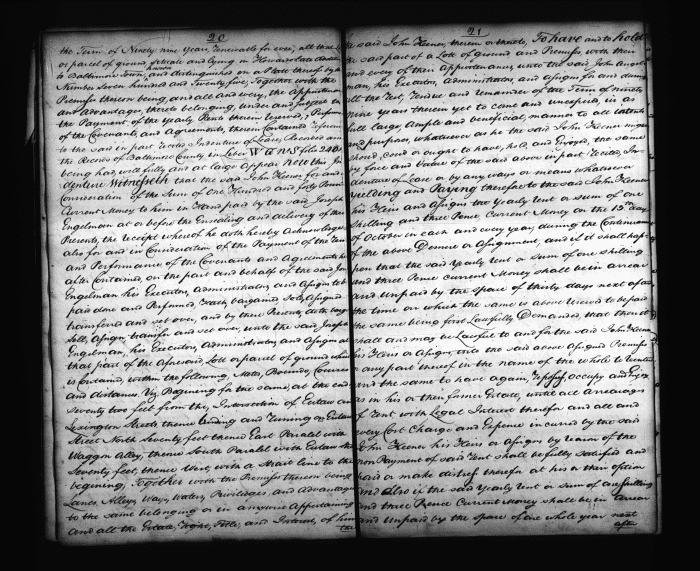 20
the Term of Ninety nine Years, renewable for ever, all that
or parcel of ground situate and lying in Howards late addition
to Baltimore Town, and distinguished on a Plat thereof by
Number Seven hundred and Twenty five, Together with the
Premisses thereon being, and all and every, the Appurtenances
and Advantages, thereto belonging, under and subject to
the Payment of the Yearly Rents therein reserved, & Performance
of the Covenants, and Agreements, therein Contained Reference
to the said in part recited Indenture of Lease, Recorded among
the Records of Baltimore County in Liber W G N S folio 240
being had, will fully and at large appear Now this In
denture Witnesseth that the said John Keener for and in
Consideration of the Sum of One Hundred and forty Pounds
Current Money to him in Hand paid by the said Joseph
Engelman at or before the Ensealing and delivery of these
Presents, the receipt whereof he doth hereby Acknowledge
also for and in Consideration of the Payment of the Rent
and Performance of the Covenants and Agreements herein
after Contained on the part and behalf of the said Joseph
Engelman his Executors, Administrators and Assigns to be
paid done and Performed, Hath bargained, Sold, Assigned
transferred and set over, and by these Presents, doth bargain
Sell, Assign, transfer and set over, unto the said Joseph
Engelman, his Executors, Administrators and Assigns all
that part of the Aforesaid Lott or parcel of ground which
is Contained, within the following, Metes, Bounds, Courses
and distances. Viz. Beginning for the same, at the end
Seventy two feet from the, Intersection of Eutaw and
Lexington Streets thence binding and running on Eutaw
Street North Seventy feet thence East Paralel with
Waggon Alley, thence South Paralel with Eutaw Street
Seventy feet, thence West, with a Strait Line to the
begining, Together with the Premisses thereon being
Lanes, Alleys, Ways, Waters, Priviledges, and Advantages
to the same belonging or in anywise Appertaining
and all the Estate, Right, Title, and Interest, of him
the
21
the said John Keener, therein or thereto, To have and to hold
the said part of a Lott of ground and Premisses, with their
and every of their Appurtenances, unto the said
man, his Executors, Administrators, and Assigns for and during
all the Rest, Residue and remainder of the Term of ninety
nine Years therein yet to come and unexpired, in as
full large, Ample and beneficial, manner to all intents
and purposes, whatsoever as he the said John Keener might
should, could or ought to have, hold, and Enjoyed, the same
by force and Virtue of the said above in part Recited, In
denture of Lease or by any ways or means whatsoever
Yielding and Paying therefore to the said John Keener
his Heirs and Assigns the Yearly Rent or Sum of One
shilling and three Pence Current Money on the 15th day
of October in each and every year, during the Continuance
of the above Demise or Assignment, and if it shall hap-
pen that the said Yearly Rent or Sum of one shilling
and three Pence Current Money shall be in arrear
and unpaid by the Space of thirty days next after
the time on which the same is above reserved to be paid
the same being first Lawfully Demanded, that then it
shall and may be Lawful to and for the said John Keener
his Heirs or Assigns, into the said above Assigned Premisses
or any part thereof in the name of the whole to reenter
and the same to have again, repossess, occupy and Enjoy
as in his or their former Estate, until all arrearages
of Rent with Legal Interest therefor and all and
every Cost Charge and Expence incurred by the said
John Keener his Heirs or Assigns by reason of the
non Payment of said Rent shall be fully satisfied and
paid or make distress therefor at his or their option
And Also if the said Yearly Rent or Sum of one shilling
and three Pence Current Money shall be in arrear
and unpaid by the space of one whole year next
after